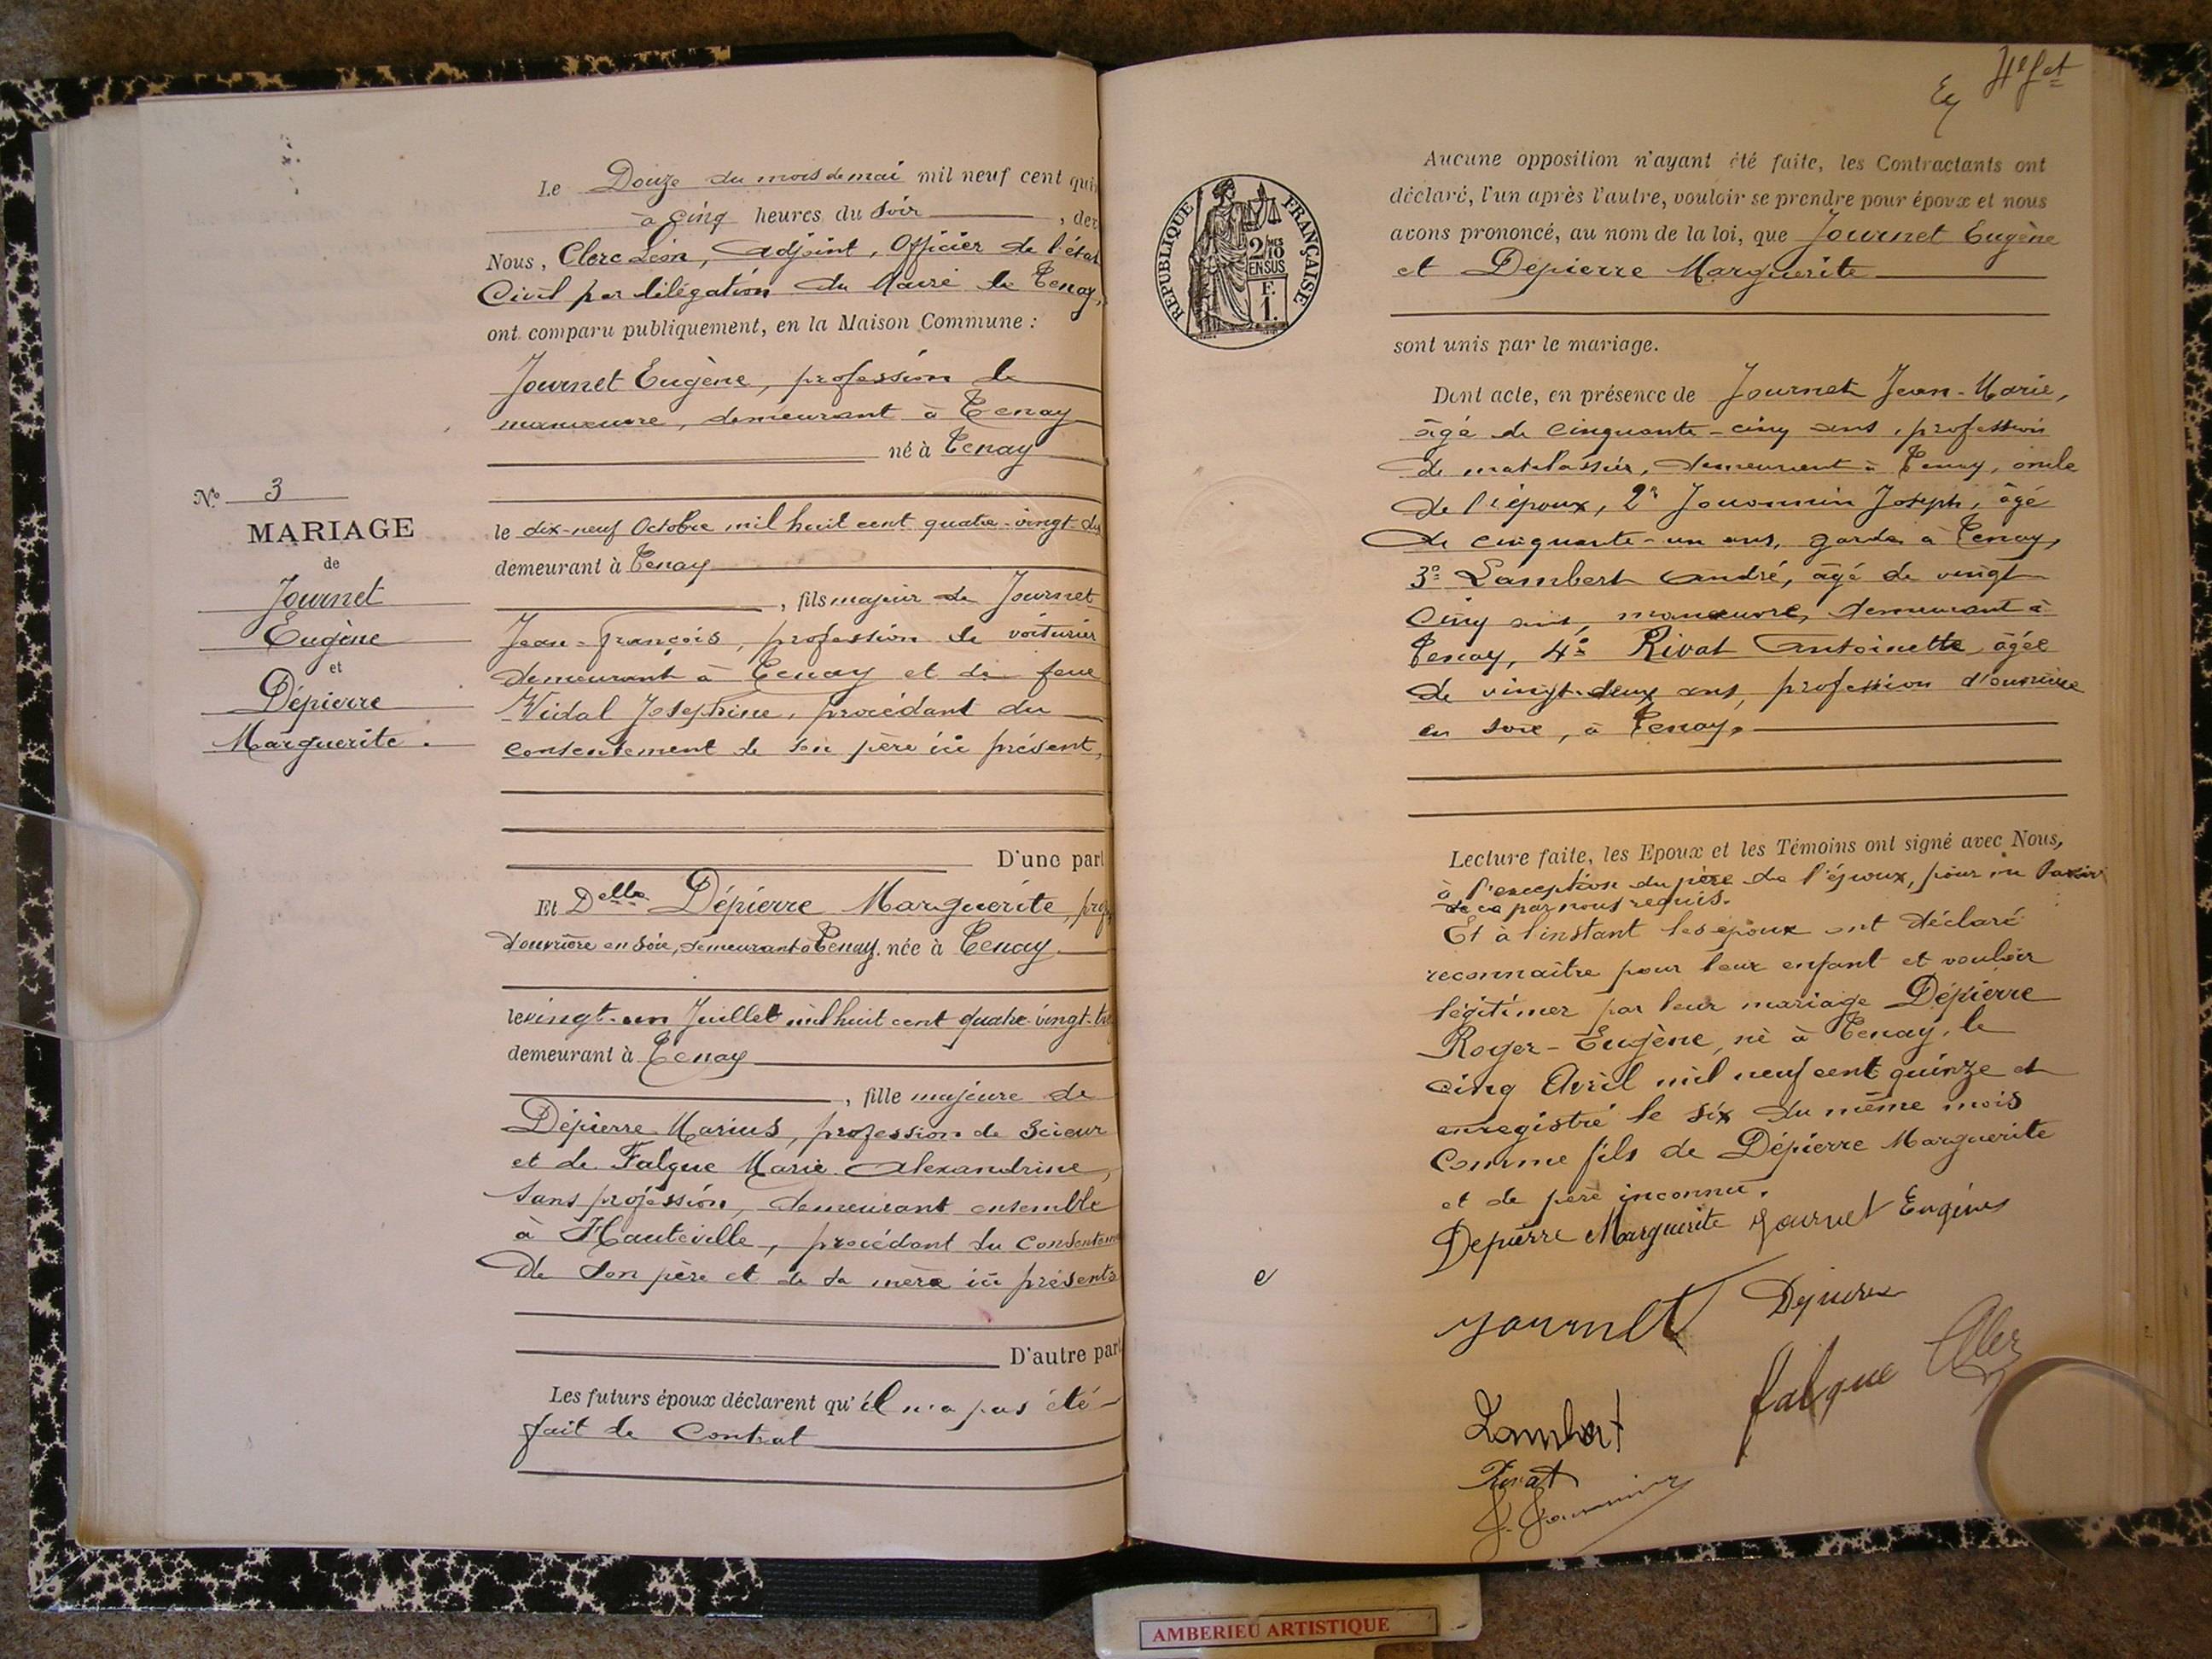 Le Douze du mois de mai mil neuf cent quin
à cinq heures du soir , de
Nous, Clerc Léon, adjoint, Officier de l'état
Civil par délégation du Maire de Tenay,
ont comparu publiquement, en la Maison Commune :
Journet Eugène, profession de
manœuvre, demeurant à Tenay
né à Tenay
le dix-neuf Octobre mil huit cent quatre-vingt-di
demeurant à Tenay
, fils majeur de Journet
Jean-François, profession de voiturier
demeurant à Tenay et de feue
Vidal Josephine, procédant du
consentement de son père ici présent,
D'une part
Et Delle Dépierre Marguerite, prof
d'ouvrière en soie, demeurant à Tenay. née à Tenay
le vingt-un Juillet mil huit cent quatre-vingt-tre
demeurant à Tenay
, fille majeure de
Dépierre Marius, profession de Scieur
et de Falque Marie Alexandrine,
sans profession, demeurant ensemble
à Hauteville, procédant du consentem
de son père et de sa mère ici présents
D'autre part
Les futurs époux déclarent qu'il n'a pas été
fait de Contrat
No 3
MARIAGE
de
Journet
Eugène
et
Dépierre
Marguerite.
RÉPUBLIQUE FRANÇAISE
2/10
EN SUS
F.
1.
Aucune opposition n'ayant été faite, les Contractants ont
déclaré, l'un après l'autre, vouloir se prendre pour époux et nous
avons prononcé, au nom de la loi, que Journet Eugène
et Dépierre Marguerite
sont unis par le mariage.
Dont acte, en présence de Journet Jean-Marie,
âgé de cinquante-cinq ans, profession
de matelassier, demeurant à Tenay, oncle
de l'époux, 2° Jouvenin Joseph, âgé
de cinquante-un ans, garde à Tenay,
3° Lambert André, âgé de vingt
cinq ans, manœuvre, demeurant à
Tenay, 4° Rivat Antoinette âgée
de vingt-deux ans, profession d'ouvrière
en soie, à Tenay,
Lecture faite, les Epoux et les Témoins ont signé avec Nous,
à l'exception du père de l'époux, pour ne savoir
de ce par nous requis.
Et à l'instant les époux ont déclaré
reconnaître pour leur enfant et vouloir
légitimer par leur mariage Dépierre
Roger-Eugène, né à Tenay, le
cinq Avril mil neuf cent quinze et
enregistré le six du même mois
comme fils de Dépierre Marguerite
et de père inconnu.
Depierre Marguerite Journet Eugène
Journet Depierre
falque
Lambert
Rivat
AMBERIEU ARTISTIQUE